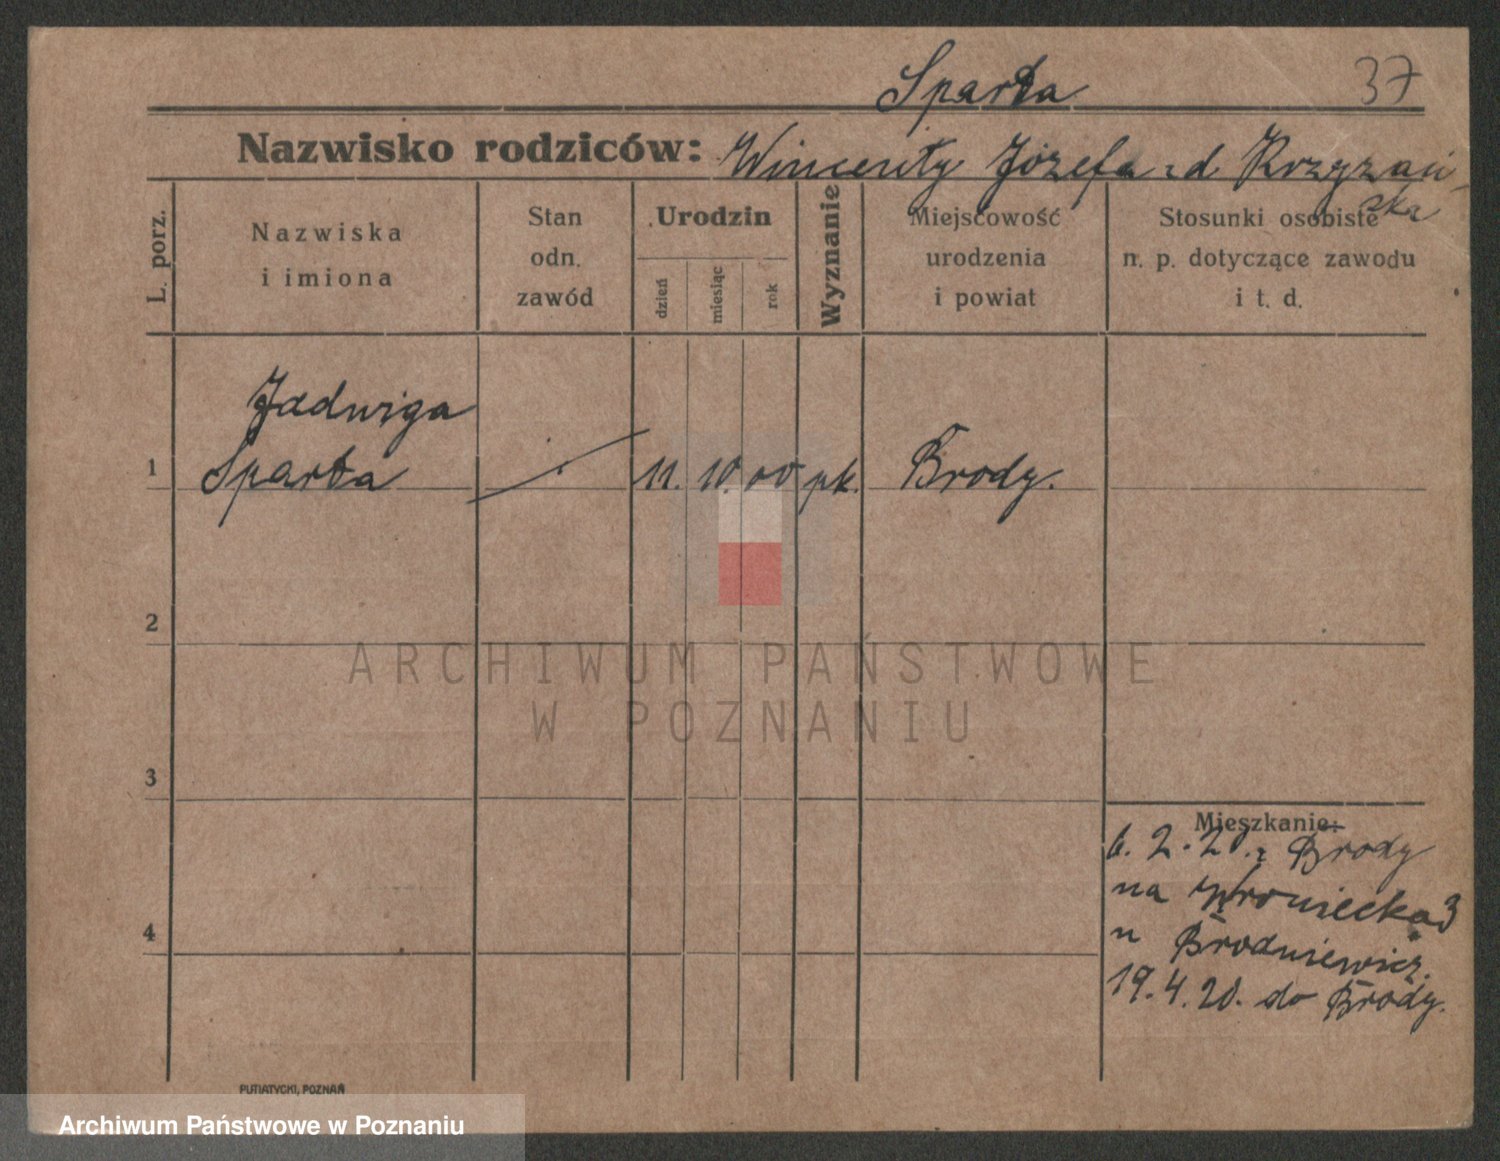 Sparta 37
Nazwisko rodziców: Wincenty Józefa z d. Krzyżań-
ska
L. porz.
Nazwiska
i imiona
Stan
odn.
zawód
Urodzin
dzień
miesiąc
rok
Wyznanie
Miejscowość
urodzenia
i powiat
Stosunki osobiste
n. p. dotyczące zawodu
i t. d.
Jadwiga
1 Sparta 11. 10. 00 pk. Brody.
2
ARCHIWUM PAŃSTWOWE
W POZNANIU
3
Mieszkanie:
6. 2. 20. z Brody
na Wroniecka 3
u Brodniewicz.
19. 4. 20. do Brody.
4
PUTIATYCKI, POZNAŃ
Archiwum Państwowe w Poznaniu